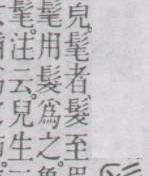 皃。髦者、髮至
髦用髮爲之
髦。注云、兒生三